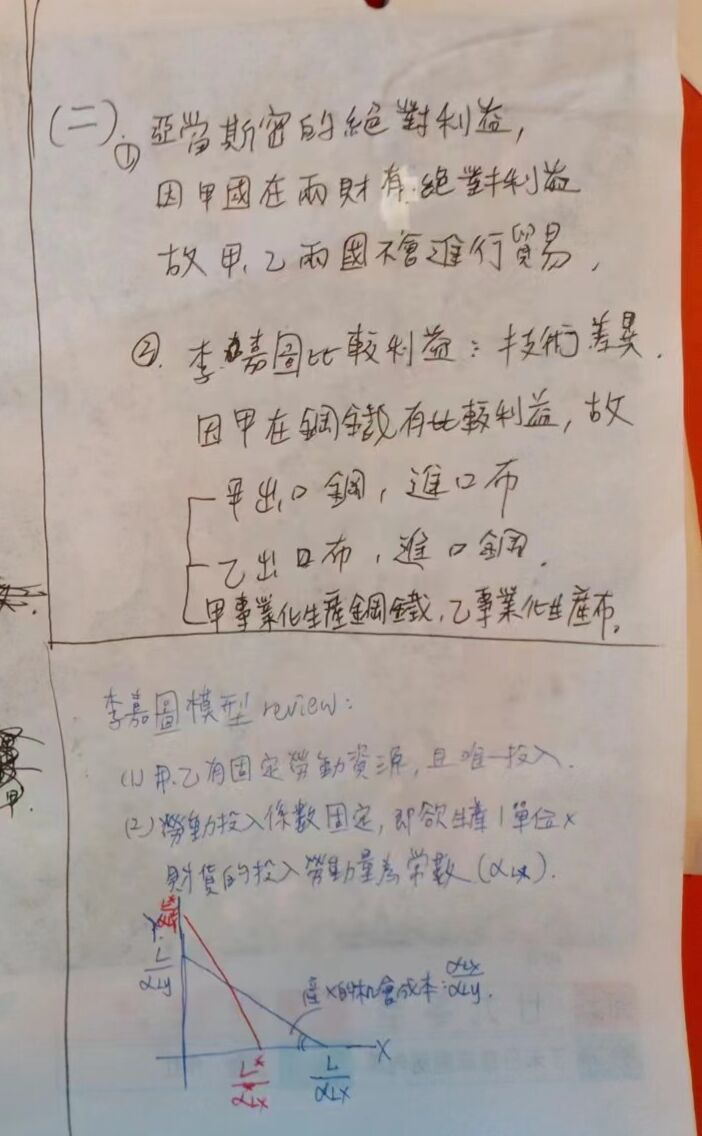 (二)① 亞當斯密的絕對利益,
因甲國在兩財有絕對利益
故甲、乙兩國不會進行貿易,
②. 李嘉圖比較利益:技術差異.
因甲在鋼鐵有比較利益,故
甲出口鋼,進口布
乙出口布,進口鋼.
甲專業化生產鋼鐵,乙專業化生產布。
李嘉圖模型 review:
(1) 甲.乙有固定勞動資源,且唯一投入.
(2) 勞動投入係數固定,即欲生產1單位X
財貨的投入勞動量為常數(αLx).
Y
L/αLy
產X的机會成本:αLx/αLy.
X
L*/α*Lx
L/αLx
甲.